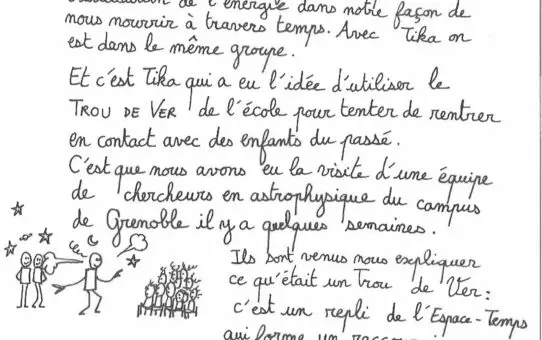 de l'énergie dans notre façon de
nous nourrir à travers temps. Avec Tika on
est dans le même groupe.
Et c'est Tika qui a eu l'idée d'utiliser le
TROU DE VER de l'école pour tenter de rentrer
en contact avec des enfants du passé.
C'est que nous avons eu la visite d'une équipe
de chercheurs en astrophysique du campus
de Grenoble il y a quelques semaines.
Ils sont venus nous expliquer
ce qu'était un Trou de Ver :
c'est un repli de l'Espace-Temps
qui forme un